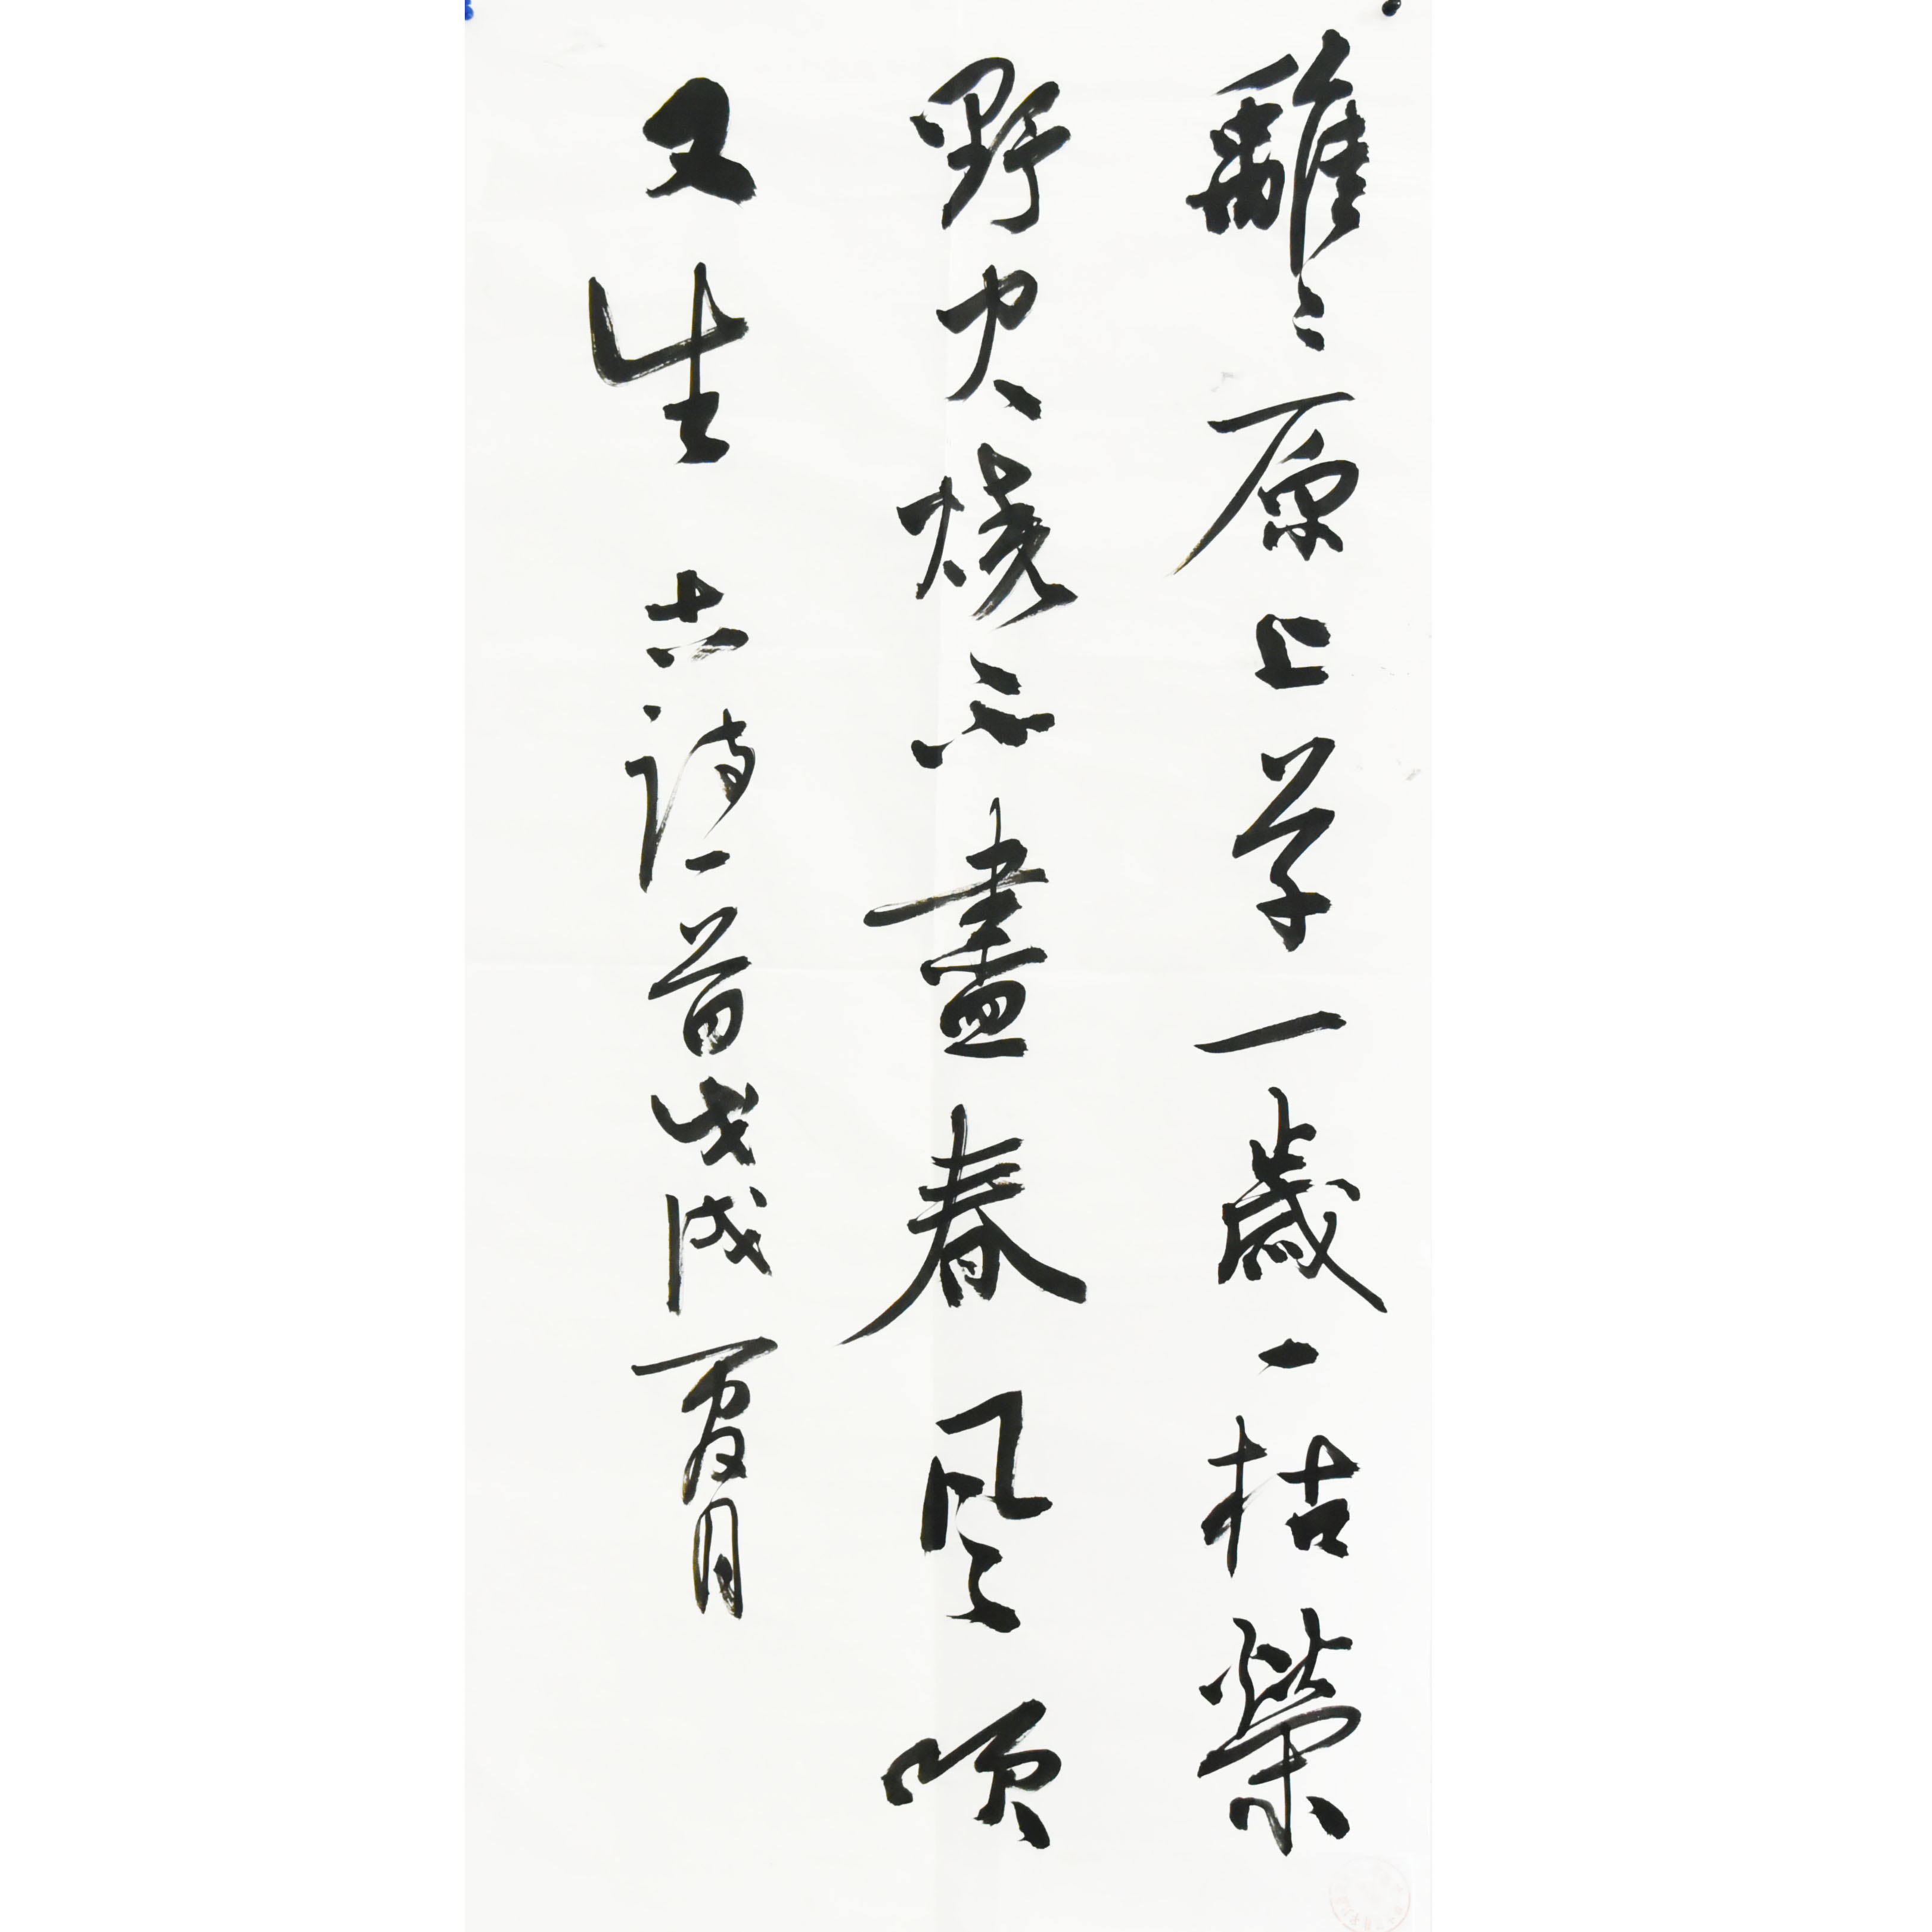 離々原上草一歲一枯榮
野火燒不盡春風吹
又生 古詩一首戊戌夏月